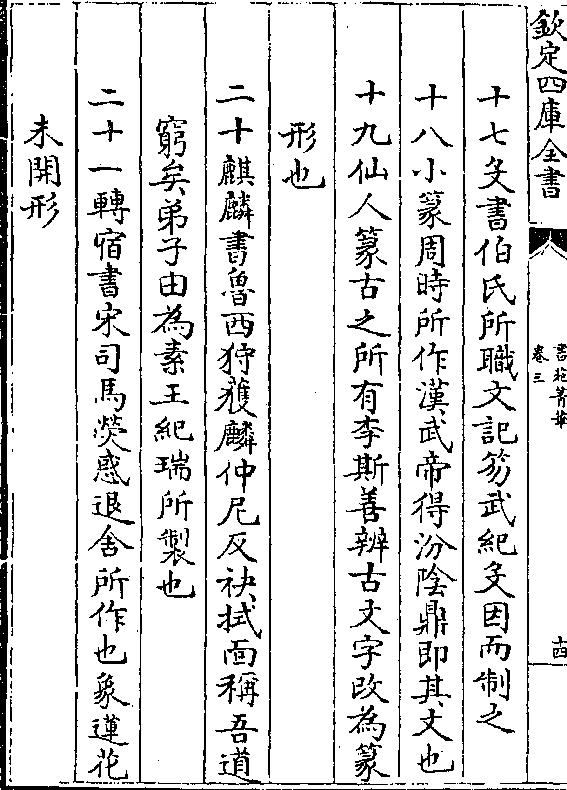 欽定四庫全書
書苑菁華
卷三
十四
十七殳書伯氏所職文記笏武紀殳因而制之
十八小篆周時所作漢武帝得汾陰鼎即其文也
十九仙人篆古之所有李斯善辨古文字改為篆
形也
二十麒麟書魯西狩獲麟仲尼反袂拭面稱吾道
窮矣弟子由為素王紀瑞所製也
二十一轉宿書宋司馬熒惑退舍所作也象蓮花
未開形